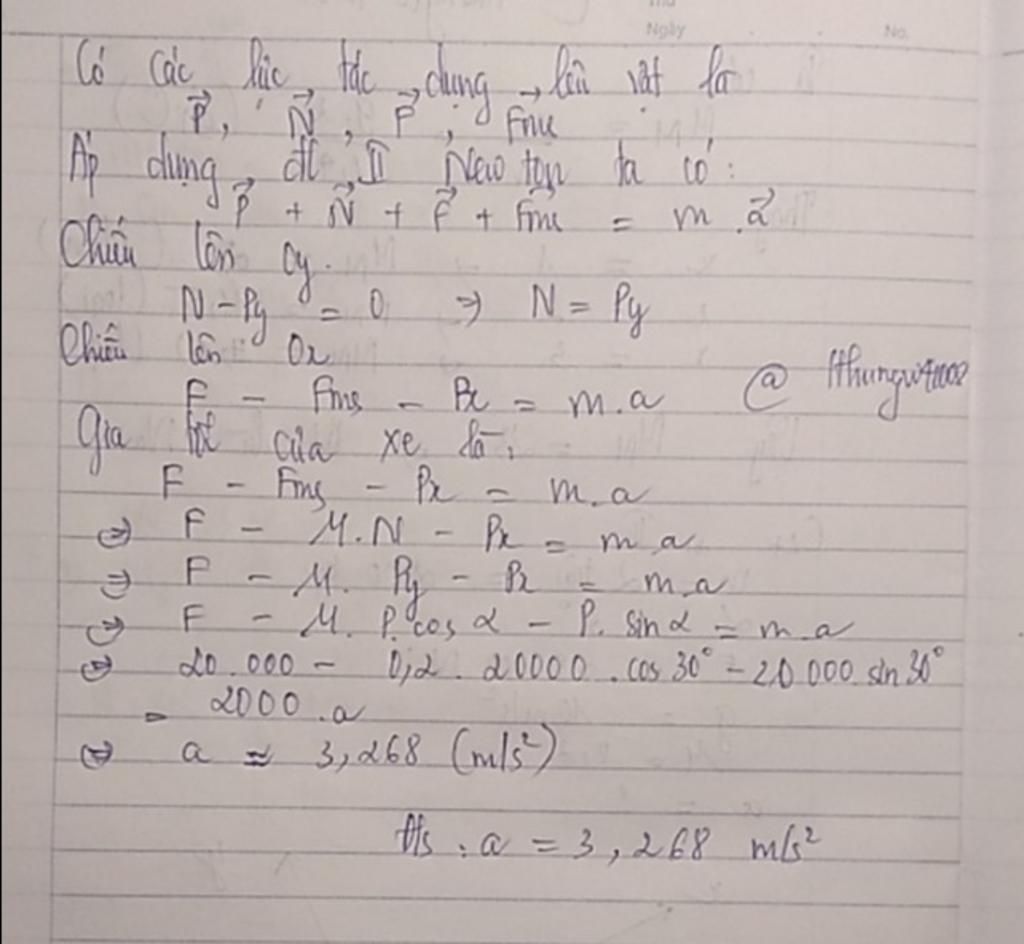 Ngày No.
Có các lực tác dụng lên vật là
P⃗, N⃗, F⃗, F⃗ms
Áp dụng đl II Newton ta có:
P⃗ + N⃗ + F⃗ + F⃗ms = m.a⃗
Chiếu lên Oy.
N - Py = 0 => N = Py
Chiếu lên Ox
F - Fms - Px = m.a @
Gia tốc của xe là:
F - Fms - Px = m.a
=> F - M.N - Px = m.a
=> F - M. Py - Px = m.a
=> F - M. P.cos α - P. sin α = m.a
=> 20.000 - 0,2. 20000 . cos 30° - 20 000 sin 30°
= 2000 .a
=> a ≈ 3,268 (m/s²)
Đs : a = 3,268 m/s²